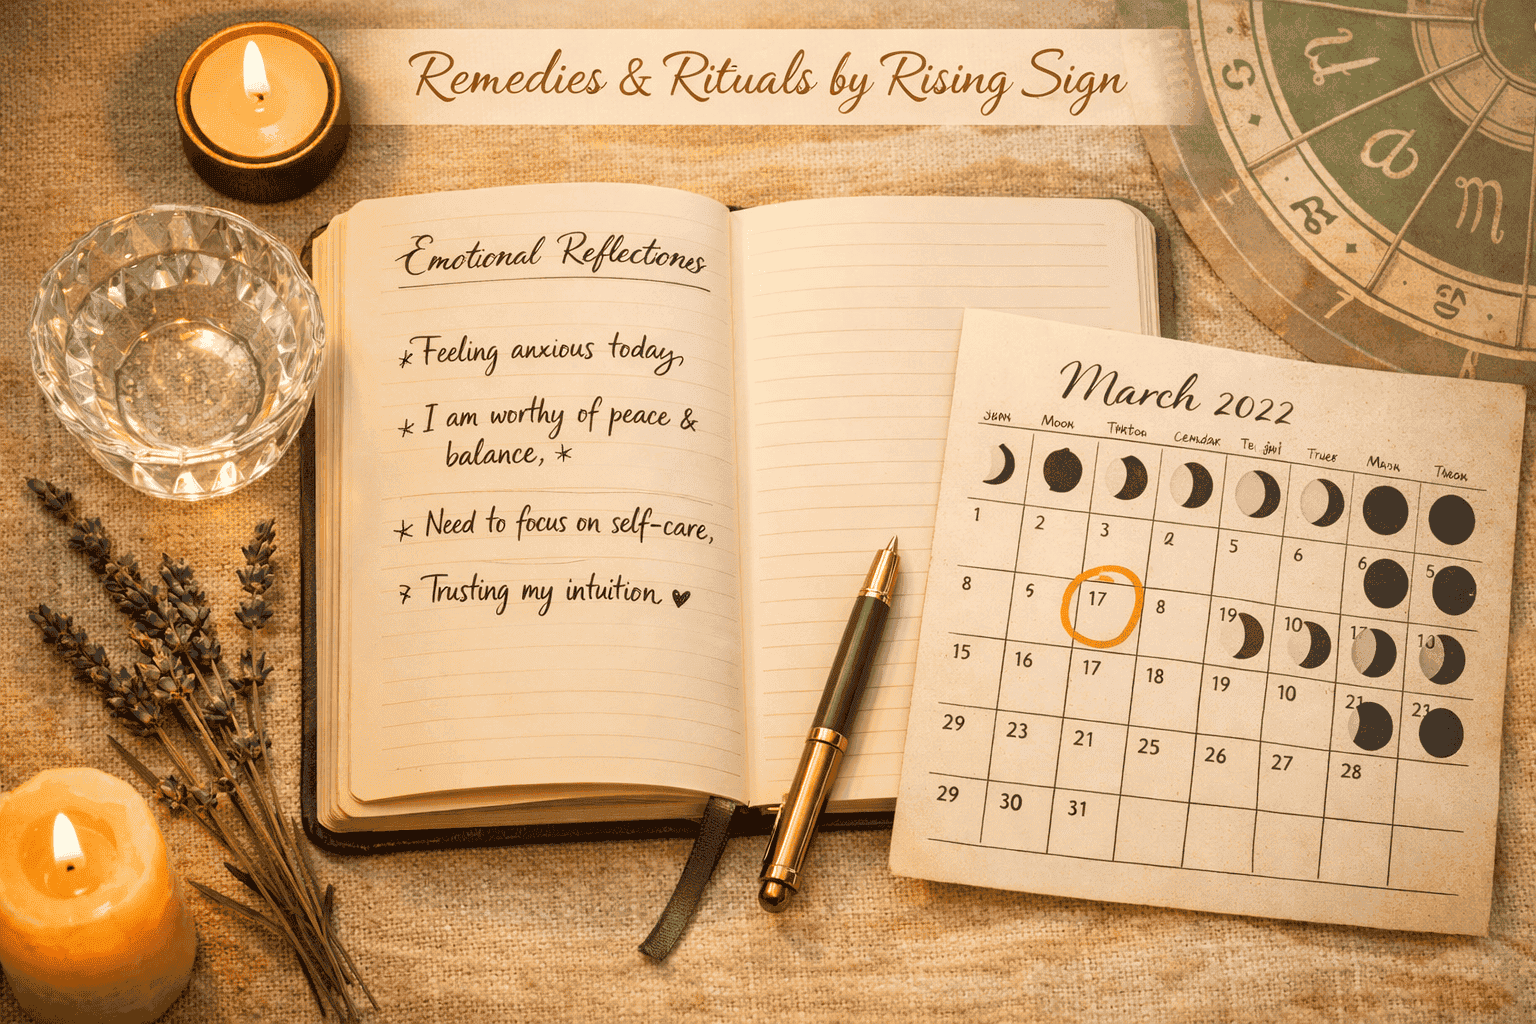 Remedies & Rituals by Rising Sign
Emotional Reflectiones
*Feeling anxious today,
* I am worthy of peace &
balance, *
* Need to focus on self-care,
7 Trusting my intuition ♥
March 2022
Moon
1 2 3 2 5 6 6 5
8 5 17 8 19 10 17 13
15 16 17 18 19 10 21 23
29 23 21 25 26 27 28
29 30 31